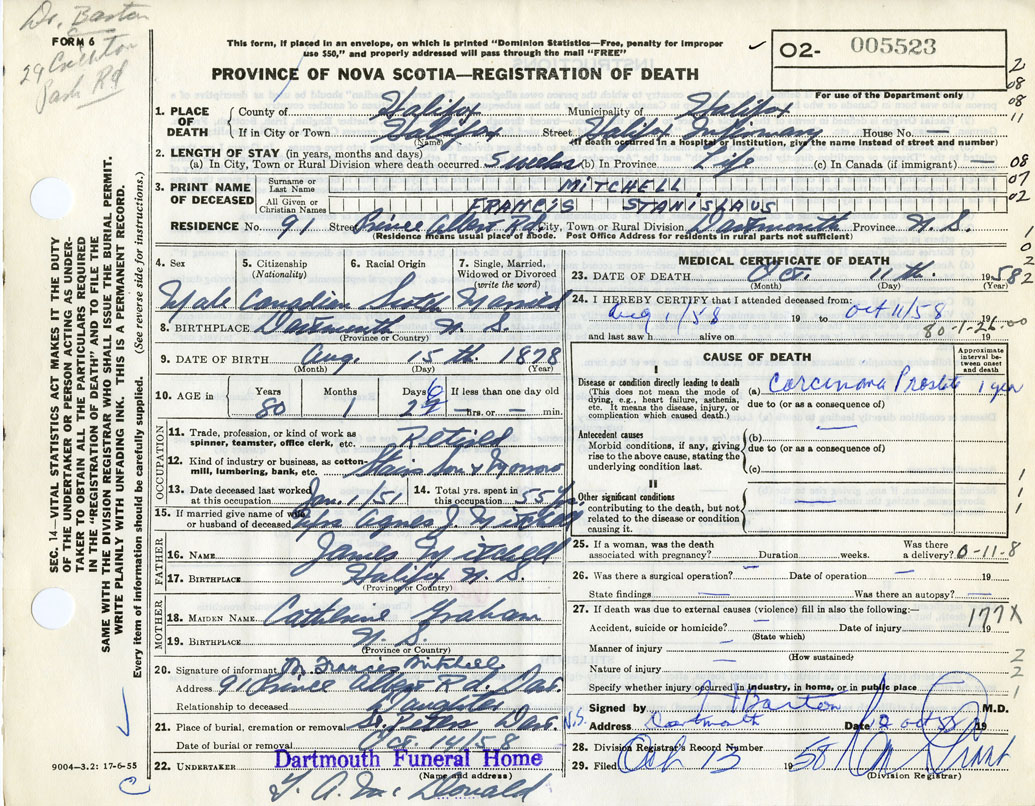 Dr. Barton
29
Park Rd
FORM 6
This form, if placed in an envelope, on which is printed "Dominion Statistics—Free, penalty for improper
use $50," and properly addressed will pass through the mail "FREE"
02- 005523
For use of the Department only
PROVINCE OF NOVA SCOTIA—REGISTRATION OF DEATH
SEC. 14—VITAL STATISTICS ACT MAKES IT THE DUTY
OF THE UNDERTAKER OR PERSON ACTING AS UNDER-
TAKER TO OBTAIN ALL THE PARTICULARS REQUIRED
IN THE "REGISTRATION OF DEATH" AND TO FILE THE
SAME WITH THE DIVISION REGISTRAR WHO SHALL ISSUE THE BURIAL PERMIT.
WRITE PLAINLY WITH UNFADING INK. THIS IS A PERMANENT RECORD.
Every item of information should be carefully supplied. (See reverse side for instructions.)
9004—3.2: 17-6-55
1. PLACE OF DEATH
County of Halifax Municipality of Halifax
If in City or Town Halifax Street Halifax Infirmary House No. —
(Name) (If death occurred in a hospital or institution, give the name instead of street and number)
2. LENGTH OF STAY (in years, months and days)
(a) In City, Town or Rural Division where death occurred 5 weeks (b) In Province Life (c) In Canada (if immigrant) —
3. PRINT NAME OF DECEASED
Surname or Last Name MITCHELL
All Given or Christian Names FRANCIS STANISLAUS
RESIDENCE No. 91 Street Prince Albert Rd. City, Town or Rural Division Dartmouth Province N.S.
(Residence means usual place of abode. Post Office Address for residents in rural parts not sufficient)
4. Sex Male
5. Citizenship (Nationality) Canadian
6. Racial Origin
7. Single, Married, Widowed or Divorced (write the word) Married
8. BIRTHPLACE Dartmouth N.S.
(Province or Country)
9. DATE OF BIRTH Aug. 15th. 1878
(Month) (Day) (Year)
10. AGE in Years 80 Months 1 Days 26 If less than one day old — hrs. or — min.
OCCUPATION
11. Trade, profession, or kind of work as spinner, teamster, office clerk, etc. Retired
12. Kind of industry or business, as cotton-mill, lumbering, bank, etc. Stairs Son & Morrow
13. Date deceased last worked at this occupation Jan. 1/51
14. Total yrs. spent in this occupation 55 yrs
15. If married give name of wife or husband of deceased Mrs Agnes J. Mitchell
FATHER
16. NAME James Mitchell
17. BIRTHPLACE Halifax N.S.
(Province or Country)
MOTHER
18. MAIDEN NAME Catherine Graham
19. BIRTHPLACE N.S.
(Province or Country)
20. Signature of informant M. Frances Mitchell
Address 91 Prince Albert Rd. Dart.
Relationship to deceased Daughter
21. Place of burial, cremation or removal St. Peters Dart. N.S.
Date of burial or removal Oct 14/58
22. UNDERTAKER Dartmouth Funeral Home
(Name and address)
MEDICAL CERTIFICATE OF DEATH
23. DATE OF DEATH Oct. 11th. 1958
(Month) (Day) (Year)
24. I HEREBY CERTIFY that I attended deceased from:
Aug 1/58 19 to Oct 11/58 19
and last saw h alive on 19
80-1-26-00
CAUSE OF DEATH
Approximate interval between onset and death
I
Disease or condition directly leading to death
(This does not mean the mode of dying, e.g., heart failure, asthenia, etc. It means the disease, injury, or complication which caused death.)
(a) Carcinoma Prostate 1 year
due to (or as a consequence of)
Antecedent causes
Morbid conditions, if any, giving rise to the above cause, stating the underlying condition last.
(b) —
due to (or as a consequence of)
(c)
II
Other significant conditions
contributing to the death, but not related to the disease or condition causing it.
25. If a woman, was the death associated with pregnancy? — Duration weeks. Was there a delivery? 0-11-8
26. Was there a surgical operation? — Date of operation — 19
State findings — Was there an autopsy? —
27. If death was due to external causes (violence) fill in also the following:—
Accident, suicide or homicide? — Date of injury 19
(State which)
177X
Manner of injury —
(How sustained)
Nature of injury —
Specify whether injury occurred in industry, in home, or in public place
Signed by Barton M.D.
Address Dartmouth Date 12 Oct 58 19
28. Division Registrar's Record Number
29. Filed Oct 13 1958
(Division Registrar)